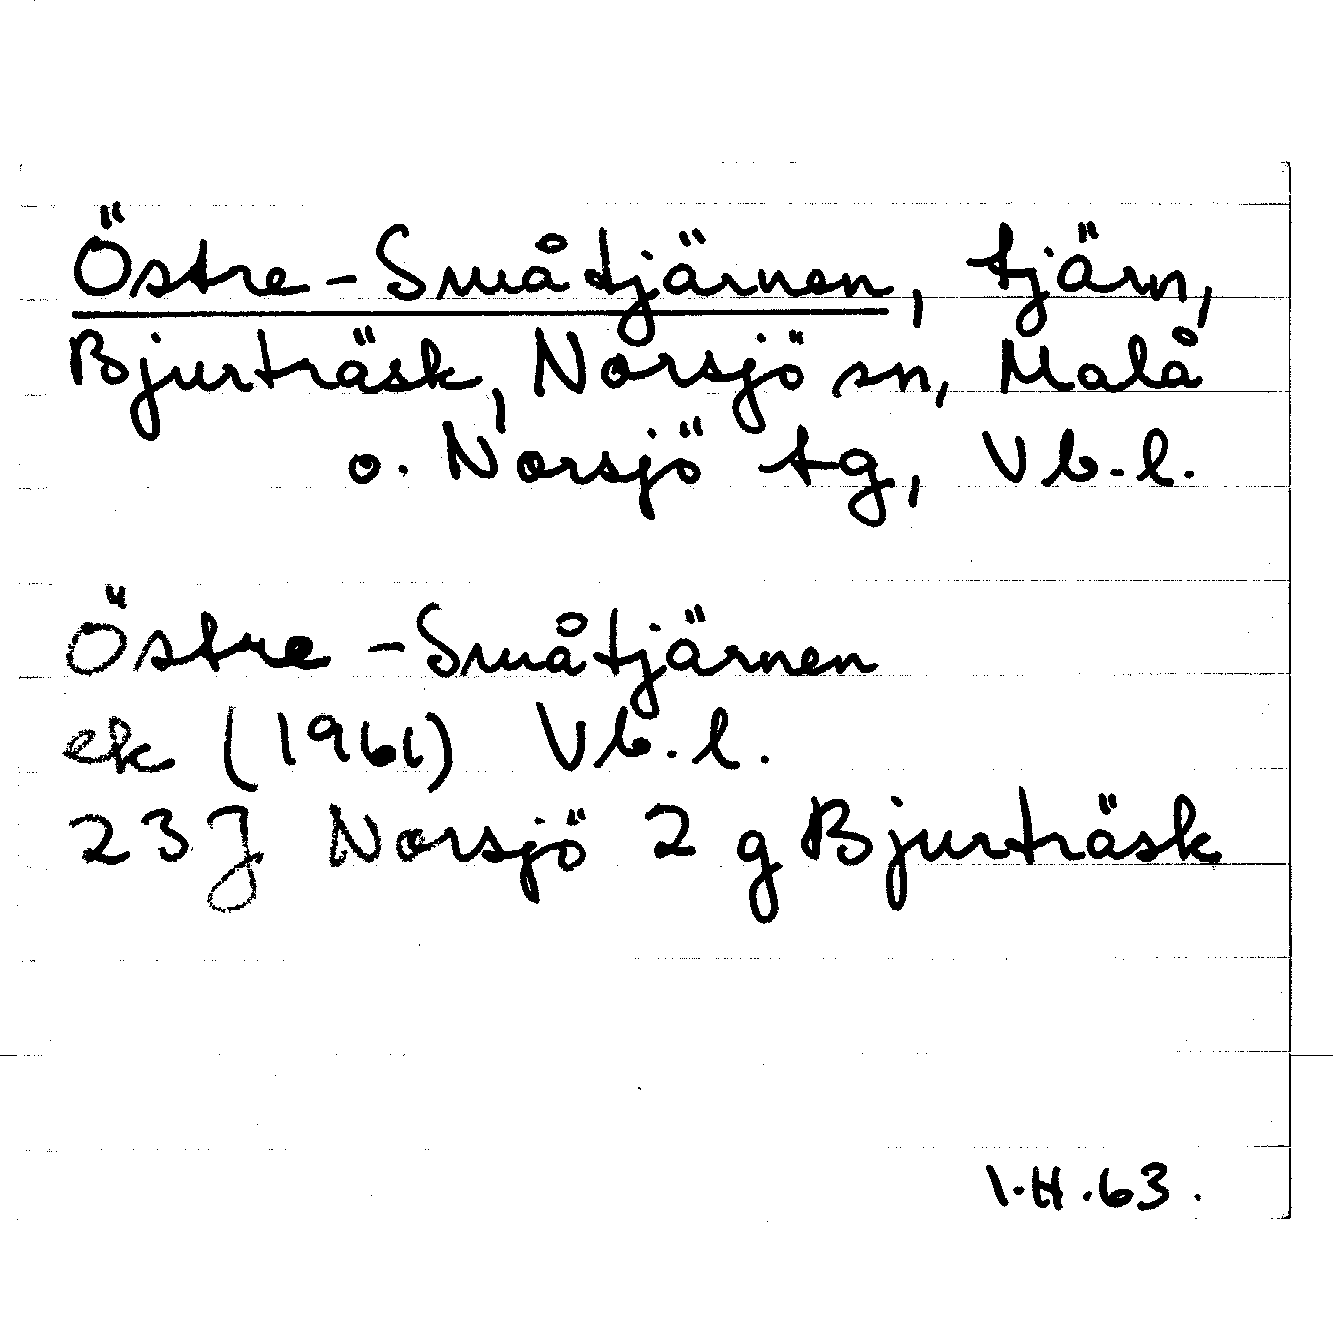 Östre-Småtjärnen, tjärn,
Bjurträsk, Norsjö sn, Malå
o. Norsjö tg, Vb.l.
Östre-Småtjärnen
ek (1961) Vb.l.
23J Norsjö 2 g Bjurträsk
I.H.63.